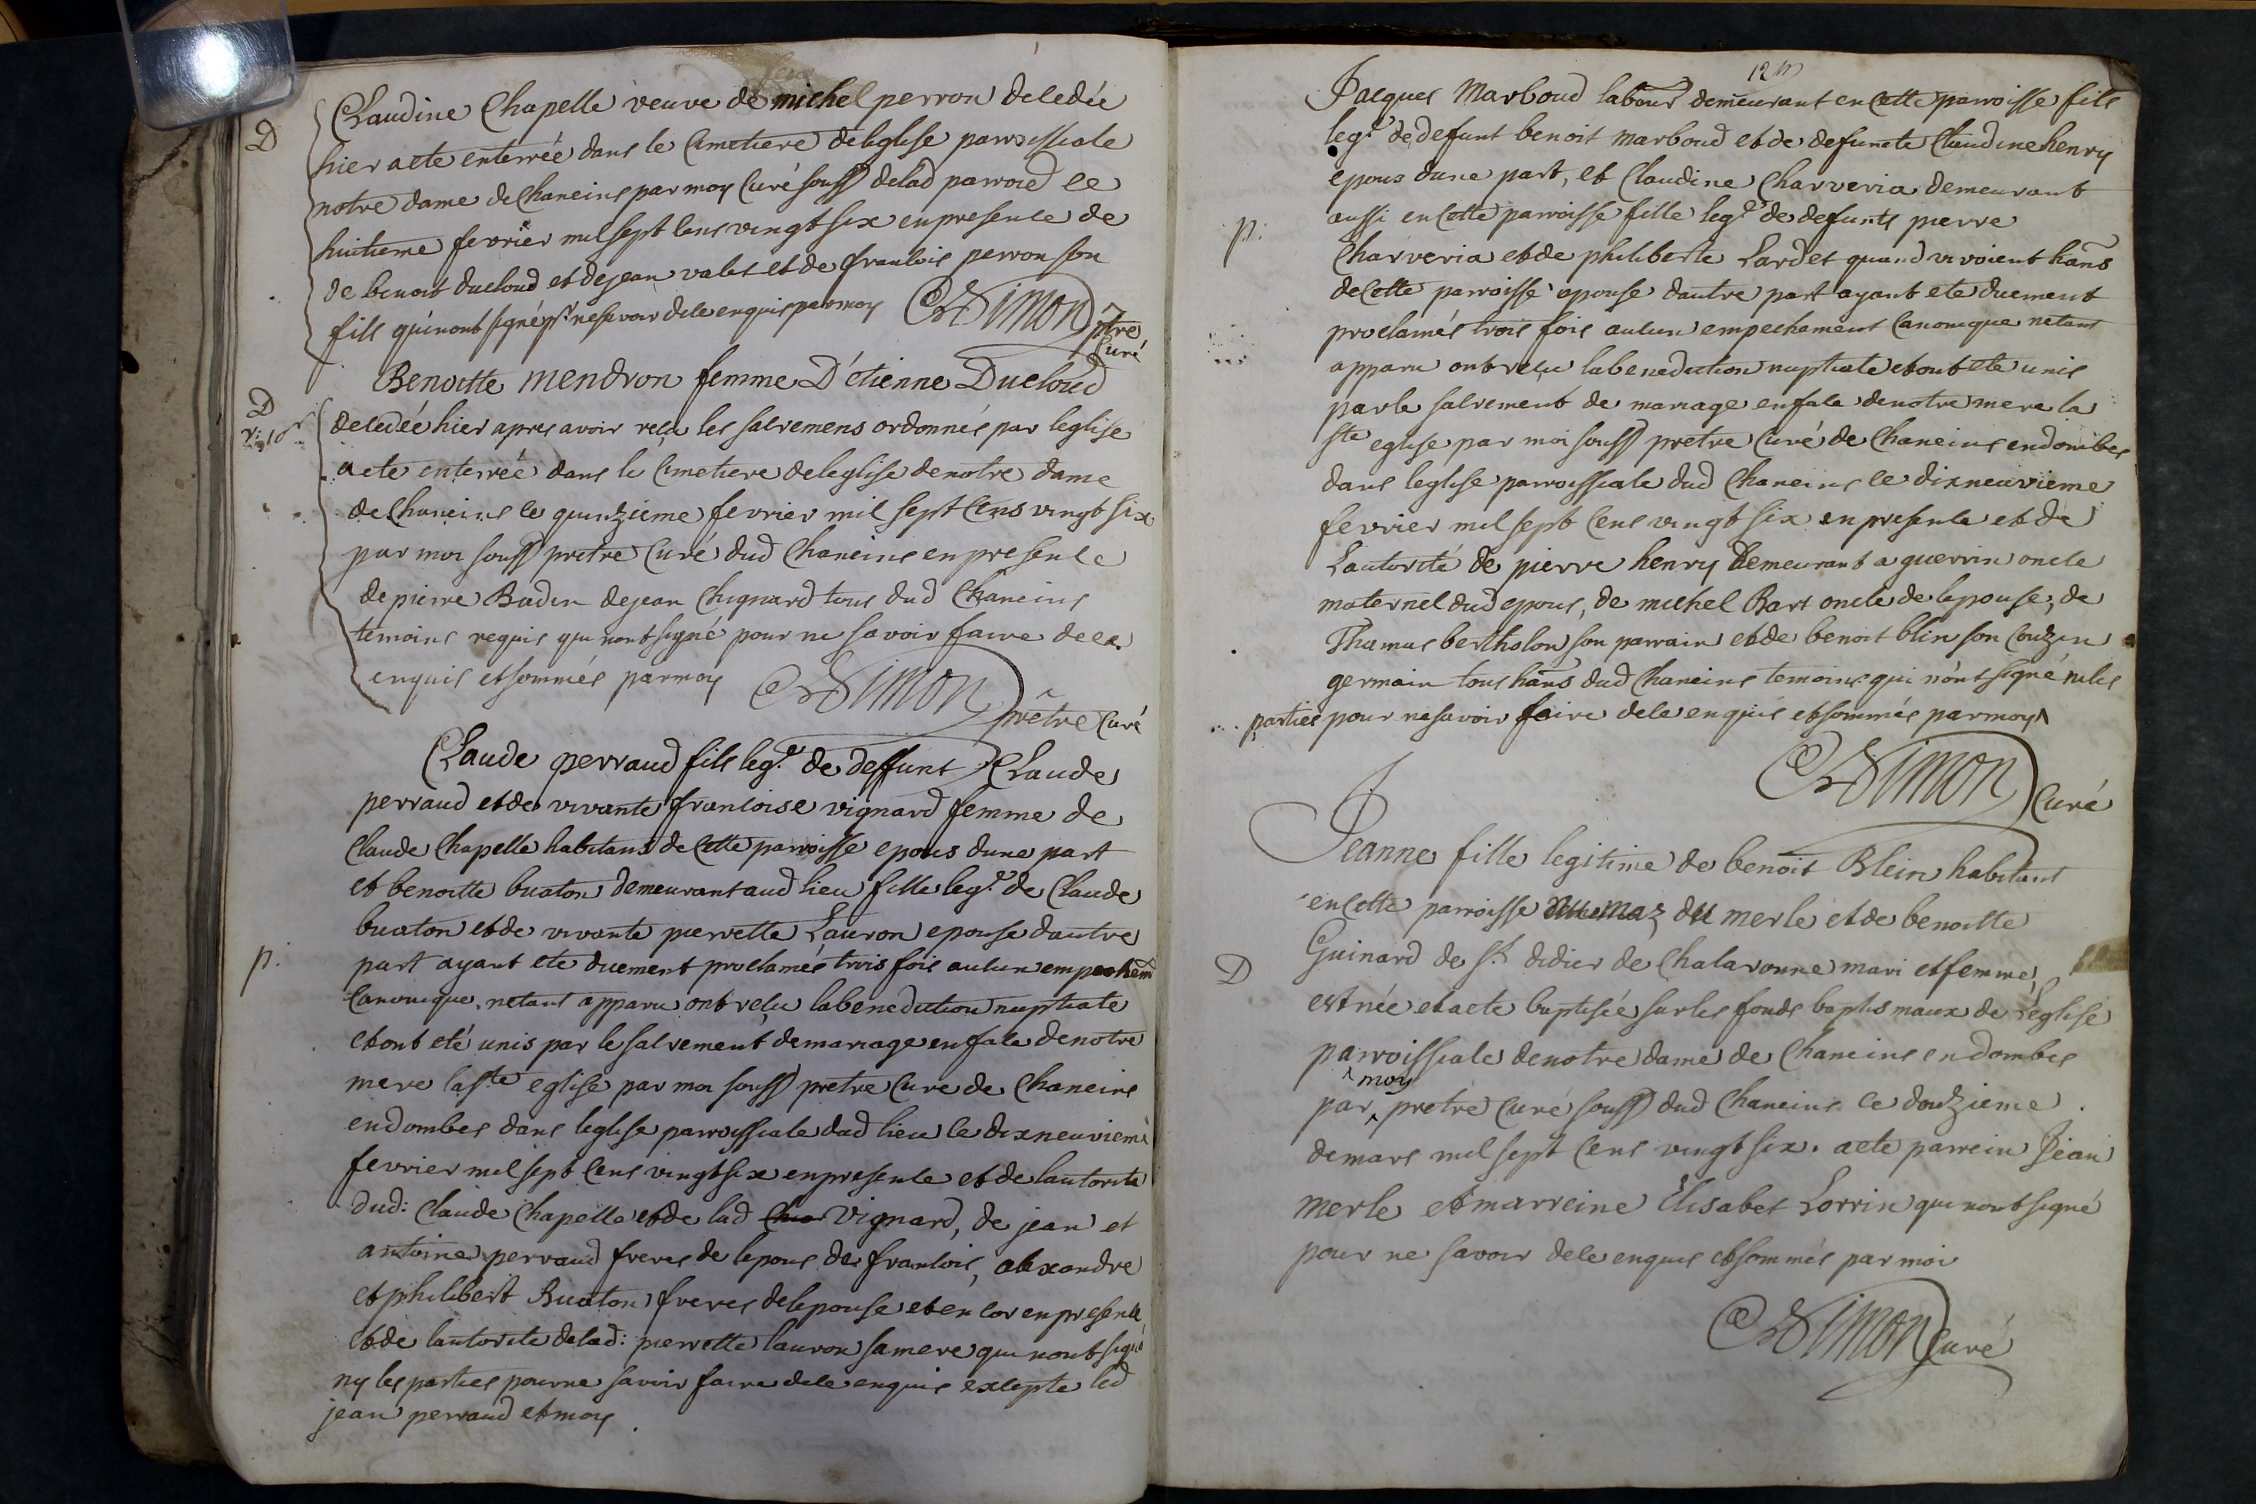 Claudine Chapelle veuve de michel perron decedée
D
hier a ete enterrée dans le Cimetiere de leglise parroissiale
notre dame de Chaneins par moy Curé souss delad parroisse le
huitieme fevrier mil sept cens vingt six en presence de
de benoit ducloud et de jean valet et de francois perron son
fils qui nont signé pr ne savoir de ce enquis par moy CSimon ptre
Curé
Benoitte mendron femme D'étienne Ducloud
D
decedée hier apres avoir reçu les sacremens ordonnés par leglise
a ete enterrée dans le Cimetiere de leglise de notre dame
de Chaneins le quinzieme fevrier mil sept Cens vingt six
par moi souss pretre Curé dud Chaneins en presence
de pierre Badin de jean Chignard tous dud Chaneins
temoins requis qui nont signé pour ne savoir faire de ce
enquis et sommés par moy CSimon
prêtre Curé
Claude perraud fils leg.e de deffunt Claude
perraud et de vivante francoise vignard femme de
Claude Chapelle habitans de Cette parroisse epous dune part
et benoitte buaton demeurant aud lieu fille leg.e de Claude
buaton et de vivante pierrette Lauron epouse dautre
p.
part ayant eté duement proclamés trois fois aucun empechem
Canonique netant apparu ont reçu la benediction nuptiale
et ont eté unis par le sacrement de mariage en face de notre
mere la ste eglise par moi souss pretre Cure de Chaneins
en dombes dans leglise parroissiale dud lieu le dixneuvieme
fevrier mil sept Cens vingt six en presence et de lautorite
dud: Claude Chapelle et de lad vignard, de jean et
antoine perraud freres de lepous de francois, alexandre
et philibert Buaton freres de lepouse et encor en presence
et de lautorite de lad: pierrette lauron sa mere qui nont signé
ny les parties pour ne savoir faire de ce enquis excepte led
jean perraud et moy
Jacques Marboud labour demeurant en Cette parroisse fils
leg.e de defunt benoit marboud et de defuncte Claudine henry
epous dune part, et Claudine Charveria demeurant
aussi en Cette parroisse fille leg.e de defunts pierre
p.
Charveria et de philiberte Lardet quand vivoient hans
de Cette parroisse epouse dautre part ayant ete duement
proclamés trois fois aucun empechement Canonique netant
apparu ont reçu la benediction nuptiale et ont ete unis
par le sacrement de mariage en face de notre mere la
ste eglise par moi souss pretre Curé de Chaneins en dombes
dans leglise parroissiale dud Chaneins le dixneuvieme
fevrier mil sept Cens vingt six en presence et de
Lautorité de pierre henry demeurant a guerrin oncle
maternel dud epous, de michel Bart oncle de lepouse, de
Thomas bertholon son parrain et de benoit blin son Couzin
germain tous hans dud Chaneins temoins qui n'ont signé ni les
parties pour ne savoir faire de ce enquis et sommés par moy
CSimon
Curé
Jeanne fille legitime de benoit Blein habitant
en Cette parroisse au maz du merle et de benoitte
Guinard de st didier de Chalaronne mari et femme
D
est née et a ete baptisée sur les fonds baptismaux de Leglise
parroissiale de notre dame de Chaneins en dombes
moy
par pretre Curé souss dud Chaneins ce douzieme
de mars mil sept Cens vingt six. a ete parrein Jean
merle et marreine Elisabet Lorrin qui nont signé
pour ne savoir de ce enquis et sommés par moi
CSimon Curé